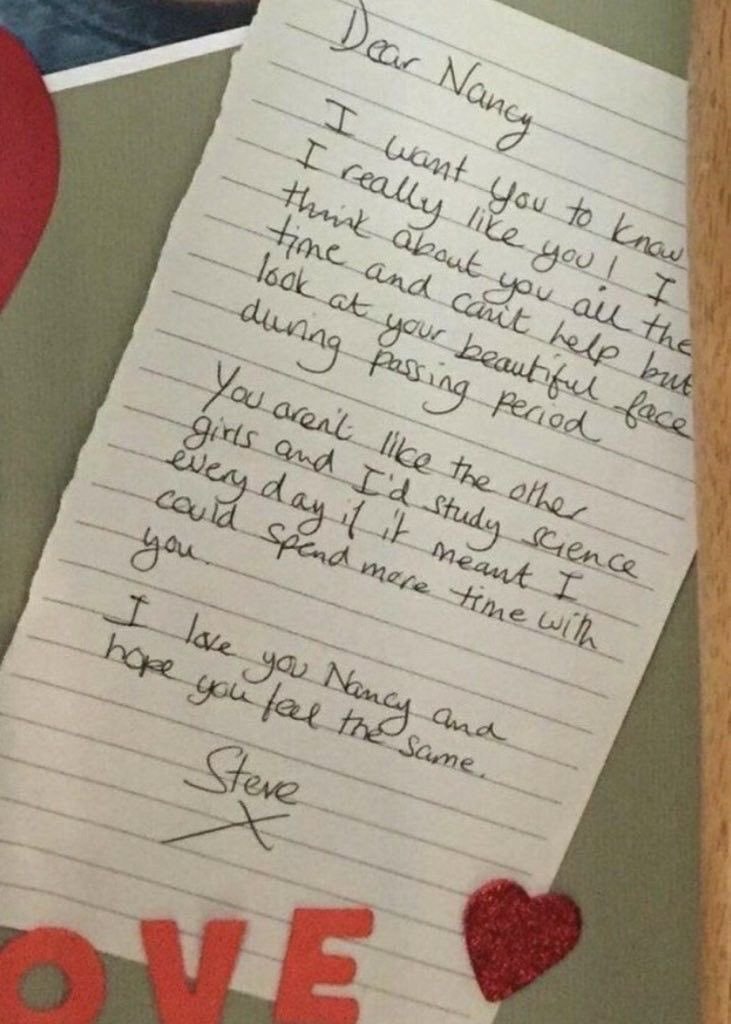 Dear Nancy
I want you to know
I really like you! I
think about you all the
time and can't help but
look at your beautiful face
during passing period
You aren't like the other
girls and I'd study science
every day if it meant I
could spend more time with
you.
I love you Nancy and
hope you feel the same.
Steve
X
OVE